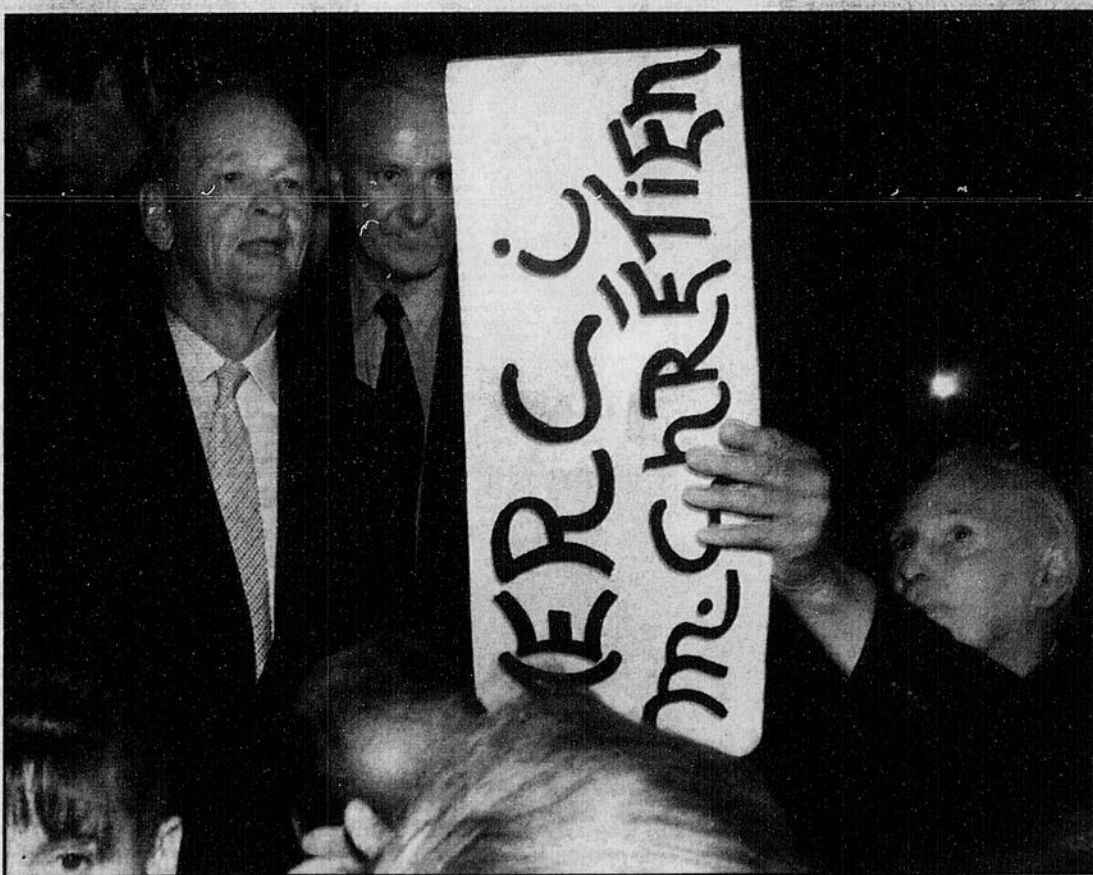 ERCi
m. ChRÉTiEn